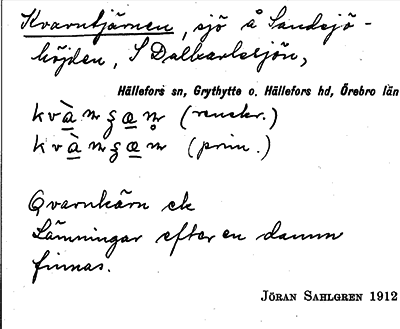 Kvarntjärnen, sjö å Sandsjö-
höjden, S Dalkarlssjön,
Hällefors sn, Grythytte o. Hällefors hd, Örebro län
(renskr.)
(prim.)
Qvarnkärn ek
Lämningar efter en damm
finnas.
JÖRAN SAHLGREN 1912